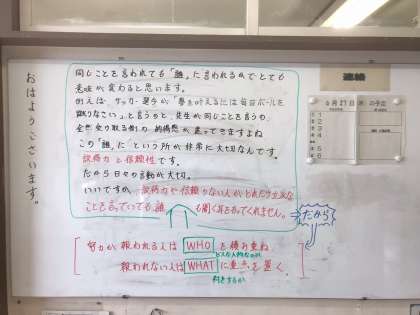 おはようございます。
同じことを言われても「誰」に言われるのでとても
意味が変わると思います。
例えば、サッカー選手が「夢を叶えるには毎日ボールを
蹴りなさい」と言うのと、先生が同じことを言うの、
全然受け取る側の納得感が違ってきますよね
この「誰に」という所が非常に大切なんです。
説得力と信頼性です。
だから日々の言動が大切。
いいですか、説得力や信頼のない人がどれだけ立派な
ことを言っていても誰も聞く耳をもってくれません。
だから
努力が報われる人は WHO を積み重ね
どんな人物なのか
報われない人は WHAT に重点を置く。
何をするか
連絡
6月27日 の予定
1
2
3
4
5
6